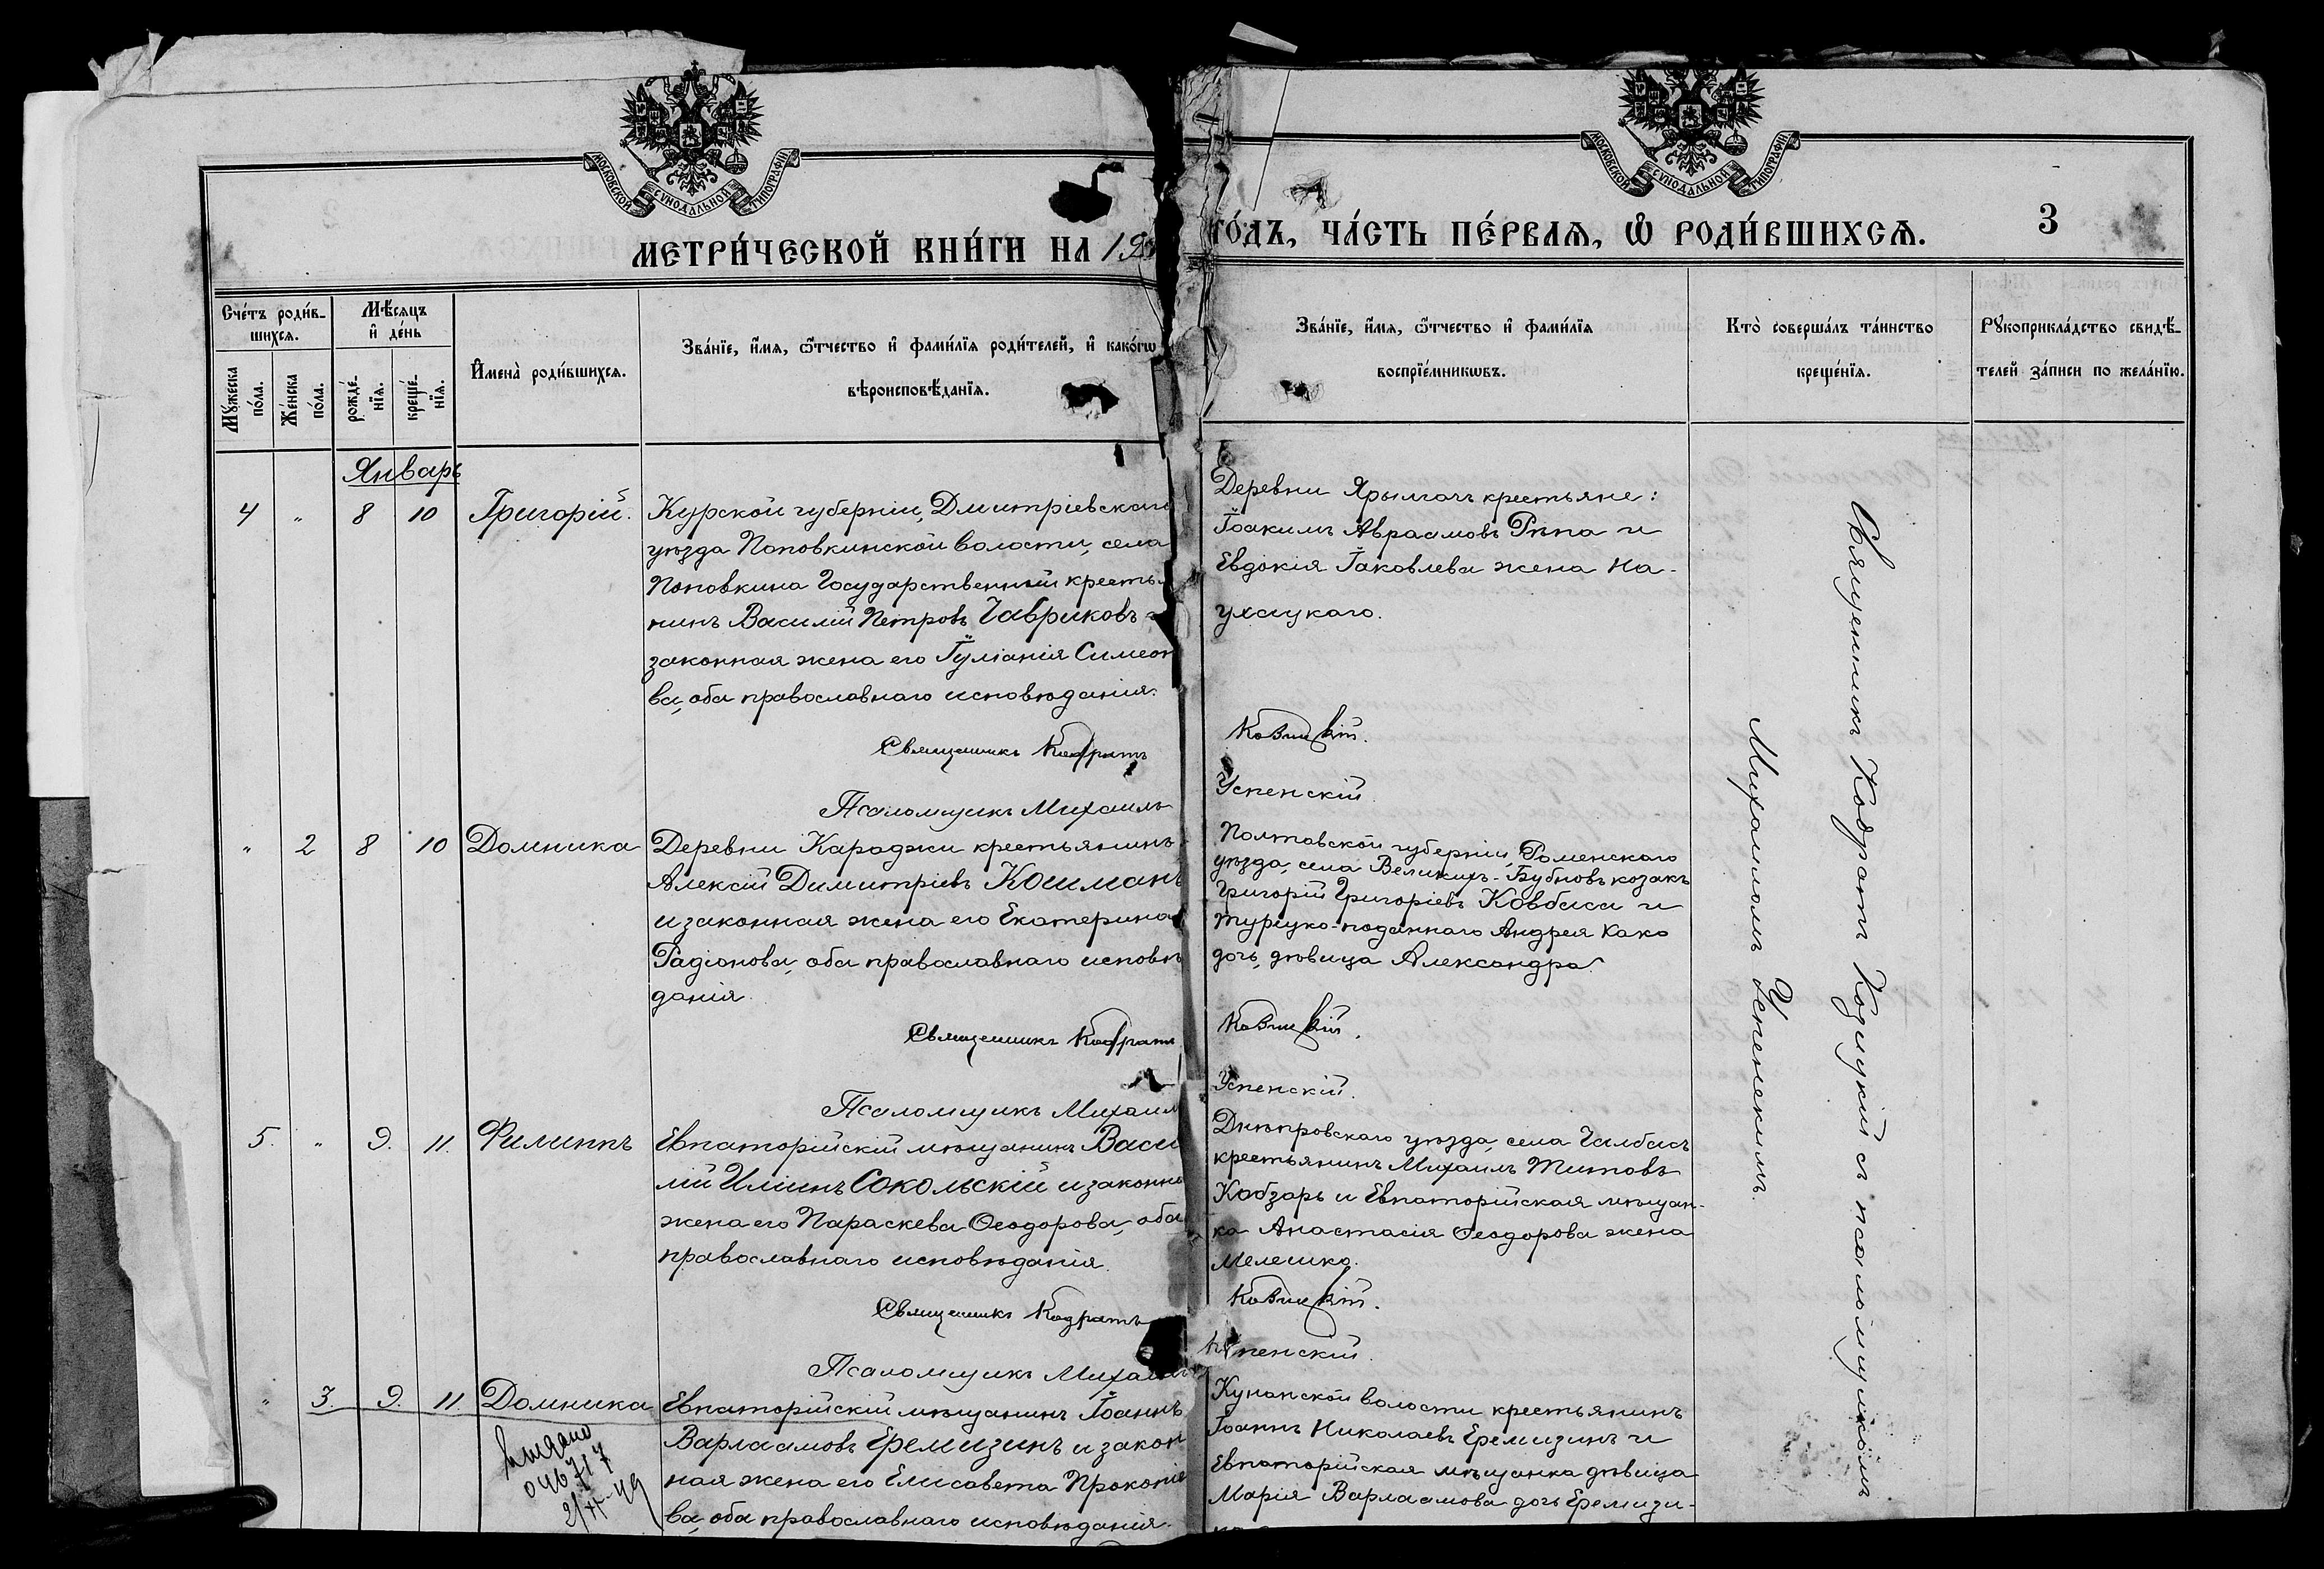 МОСКОВСКОЙ СѴНОДАЛЬНОЙ ТИПОГРАФІИ
МОСКОВСКОЙ СѴНОДАЛЬНОЙ ТИПОГРАФІИ
МЕТРИ́ЧЕСКОЙ КНИ́ГИ НА 19
ГО́ДЪ, ЧА́СТЬ ПЕ́РВАѦ, Ѽ РОДИ́ВШИХСѦ.
3
Сче́тъ роди́в-
шихсѧ.
Мꙋжеска
по́ла.
Же́нска
по́ла.
Мѣ́сѧцъ
и҆ де́нь
рожде́-
нїѧ.
креще́-
нїѧ.
И҆мена̀ роди́вшихсѧ.
Зва́нїе, и҆́мѧ, ѻ҆́тчество и҆ фами́лїѧ роди́телей, и҆ како́гѡ
вѣроисповѣ́данїѧ.
Зва́нїе, и҆́мѧ, ѻ҆́тчество и҆ фами́лїѧ
воспрїе́мникѡвъ.
Кто̀ соверша́лъ та́инство
креще́нїѧ.
Рꙋкоприкла́дство свидѣ́-
телей за́писи по жела́нїю.
Январь
4 " 8 10 Григорій.
Курской губерніи, Дмитріевскаго
уѣзда Поповкинской волости, села
Поповкина Государственный крестья
нинъ Василій Петровъ Гавриковъ
законная жена его Іуліанія Симеон
ва, оба православнаго исповѣданія.
Священникъ Кодратъ
Псаломщикъ Михаилъ
Деревни Ярылгачъ крестьяне:
Іоакимъ Авраамовъ Рѣпа и
Евдокія Іаковлева жена На-
ухацкаго.
Козицкій.
Успенскій.
" 2 8 10 Домника
Деревни Караджи крестьянинъ
Алексій Димитріевъ Кошманъ
и законная жена его Екатерина
Радіонова, оба православнаго исповѣ
данія.
Священникъ Кодратъ
Псаломщикъ Михаил
Полтавской губерніи, Роменскаго
уѣзда, села Великихъ-Бубновъ козакъ
Григорій Григоріевъ Ковбаса и
турецко-поданнаго Андрея Како
дочь, дѣвица Александра.
Козицкій.
Успенскій.
5. " 9. 11. Филиппъ
Евпаторійскій мѣщанинъ Васи
лій Иліинъ Сокольскій и законна
жена его Параскева Ѳеодорова, оба
православнаго исповѣданія.
Священникъ Кодратъ
Псаломщикъ Михаилъ
Днѣпровскаго уѣзда, села Чалбасъ
крестьянинъ Михаилъ Титовъ
Кобзарь и Евпаторійская мѣщан-
ка Анастасія Ѳеодорова жена
Мелешко.
Козицкій.
Успенскій.
" 3. 9. 11. Домника
Евпаторійскій мѣщанинъ Іоаннъ
Варлаамовъ Еремизинъ и закон
ная жена его Елисавета Прокопіе
ва, оба православнаго исповѣданія.
Кунанской волости крестьянинъ
Іоаннъ Николаевъ Еремизинъ и
Евпаторійская мѣщанка дѣвица
Марія Варлаамова дочь Еремизи-
046717
Священникъ Кодратъ Козицкій съ псаломщикомъ
Михаиломъ Успенскимъ.